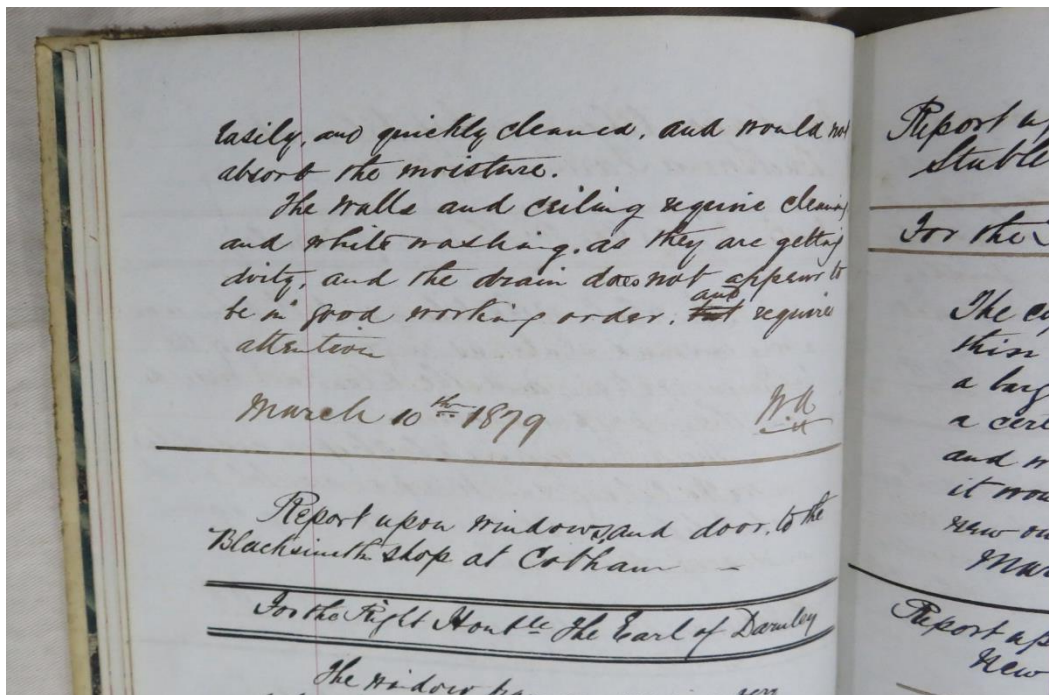 easily, and quickly cleaned, and would not
absorb the moisture.
The walls and ceiling require cleaning
and white washing, as they are getting
dirty, and the drain does not appear to
be in good working order, but and requires
attention
March 10th 1879
Report upon windows, and door, to the
Blacksmith shop at Cobham
For the Right Honble The Earl of Darnley
The window
Report
Stable
For the
The
this
a
a
and
it
new
Report
New